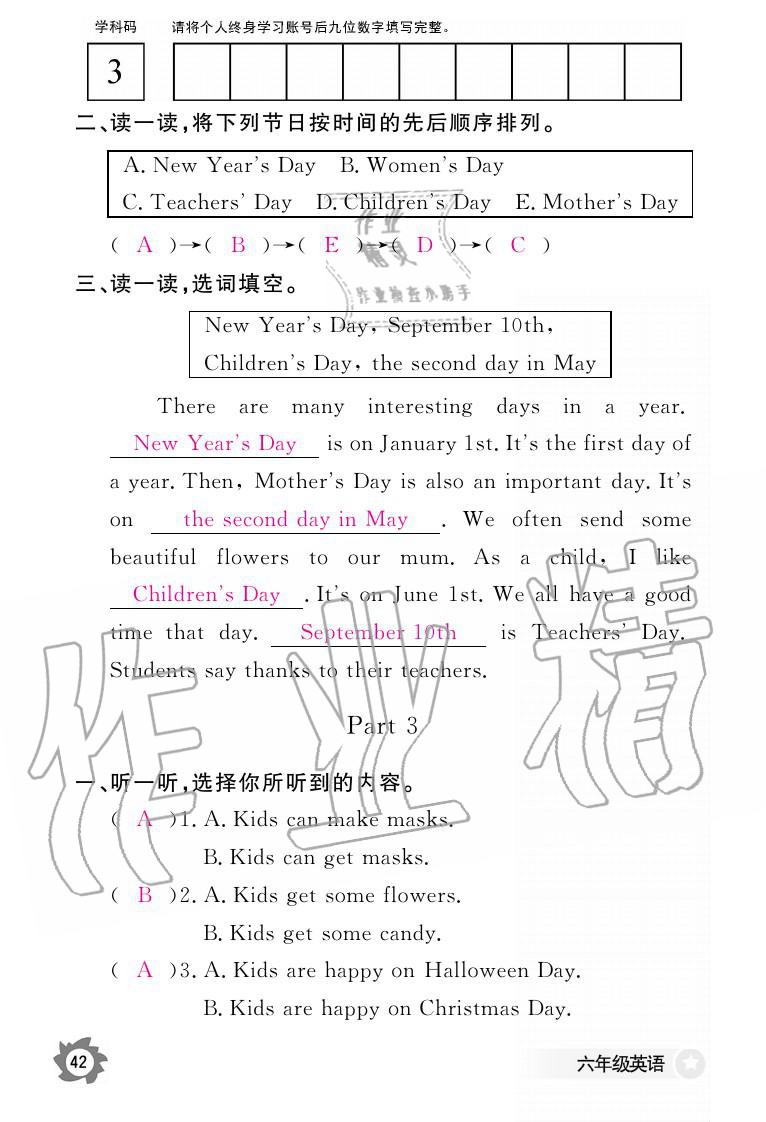 学科码 请将个人终身学习账号后九位数字填写完整。
3
二、读一读,将下列节日按时间的先后顺序排列。
A. New Year's Day B. Women's Day
C. Teachers' Day D. Children's Day E. Mother's Day
( A )→( B )→( E )→( D )→( C )
作业
精灵
作业检查小助手
三、读一读,选词填空。
New Year's Day, September 10th,
Children's Day, the second day in May
There are many interesting days in a year.
New Year's Day is on January 1st. It's the first day of
a year. Then, Mother's Day is also an important day. It's
on the second day in May . We often send some
beautiful flowers to our mum. As a child, I like
Children's Day . It's on June 1st. We all have a good
time that day. September 10th is Teachers' Day.
Students say thanks to their teachers.
作业精
Part 3
一、听一听,选择你所听到的内容。
( A )1. A. Kids can make masks.
B. Kids can get masks.
( B )2. A. Kids get some flowers.
B. Kids get some candy.
( A )3. A. Kids are happy on Halloween Day.
B. Kids are happy on Christmas Day.
42 六年级英语